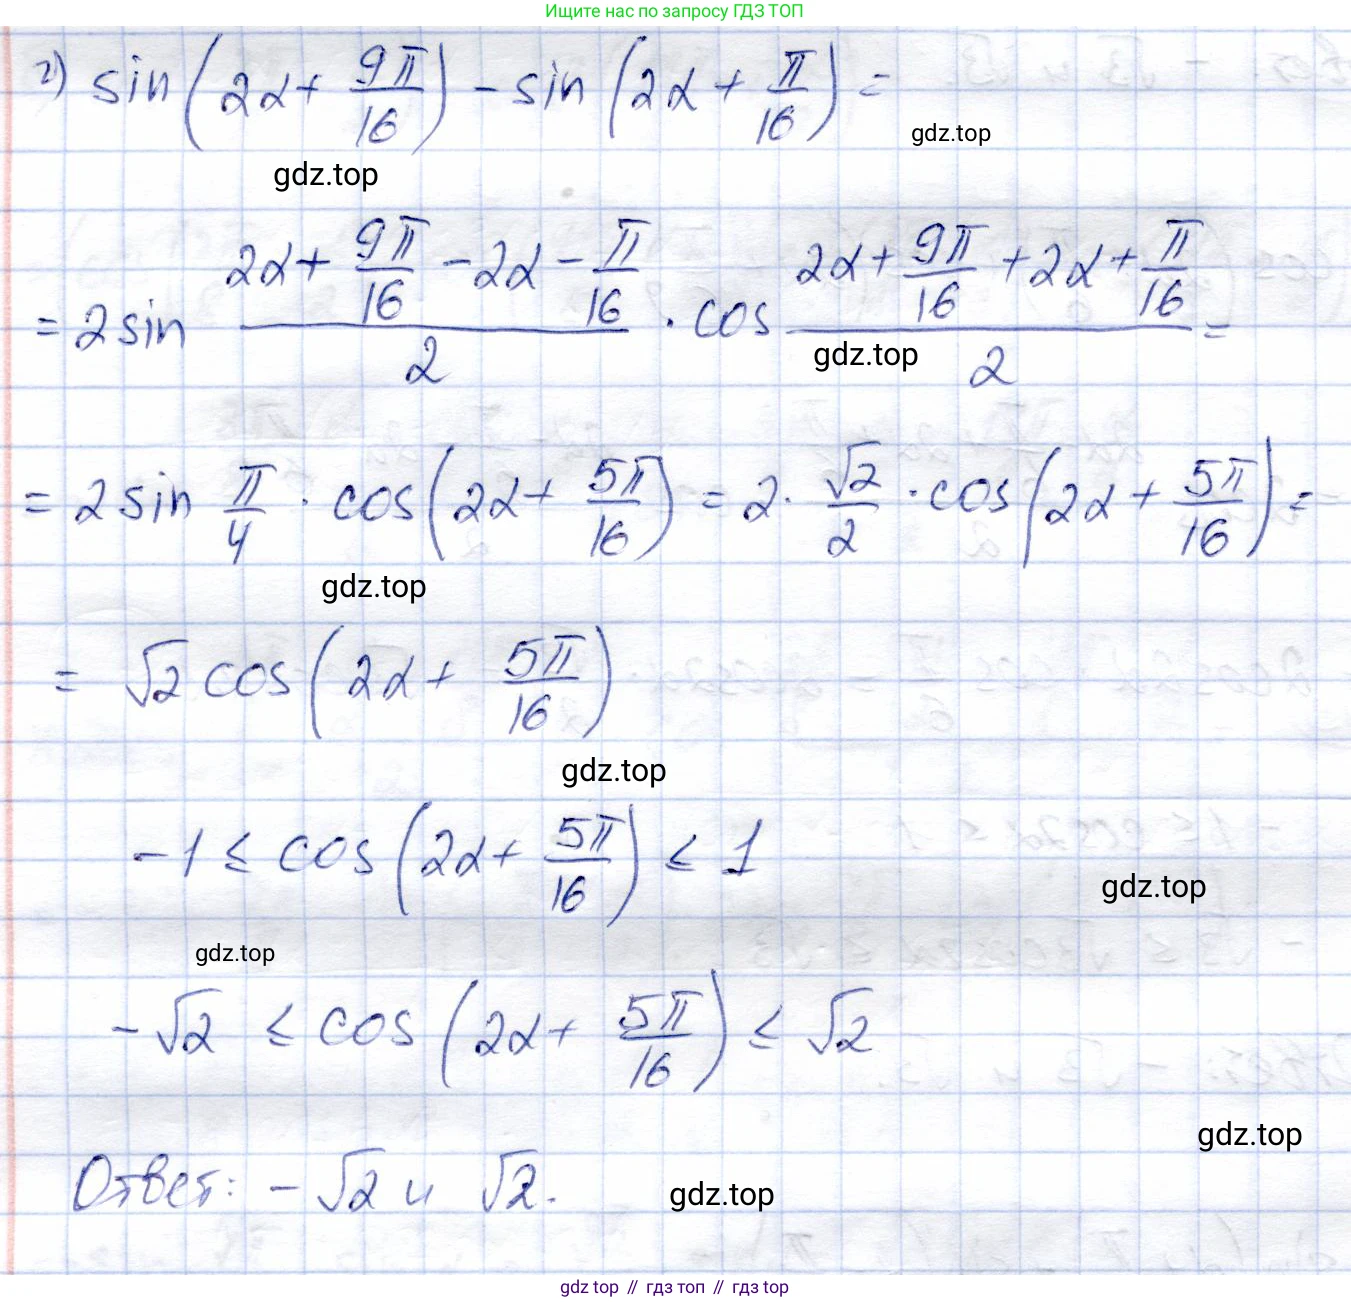 Ищите нас по запросу ГДЗ ТОП
г) sin(2α + 9π/16) - sin(2α + π/16) =
gdz.top
gdz.top
= 2 sin (2α + 9π/16 - 2α - π/16)/2 · cos (2α + 9π/16 + 2α + π/16)/2 =
gdz.top
= 2 sin π/4 · cos(2α + 5π/16) = 2 · √2/2 · cos(2α + 5π/16) =
gdz.top
= √2 cos(2α + 5π/16)
gdz.top
-1 ≤ cos(2α + 5π/16) ≤ 1
gdz.top
gdz.top
-√2 ≤ cos(2α + 5π/16) ≤ √2
gdz.top
Ответ: -√2 и √2.
gdz.top
gdz top // гдз топ // гдз top